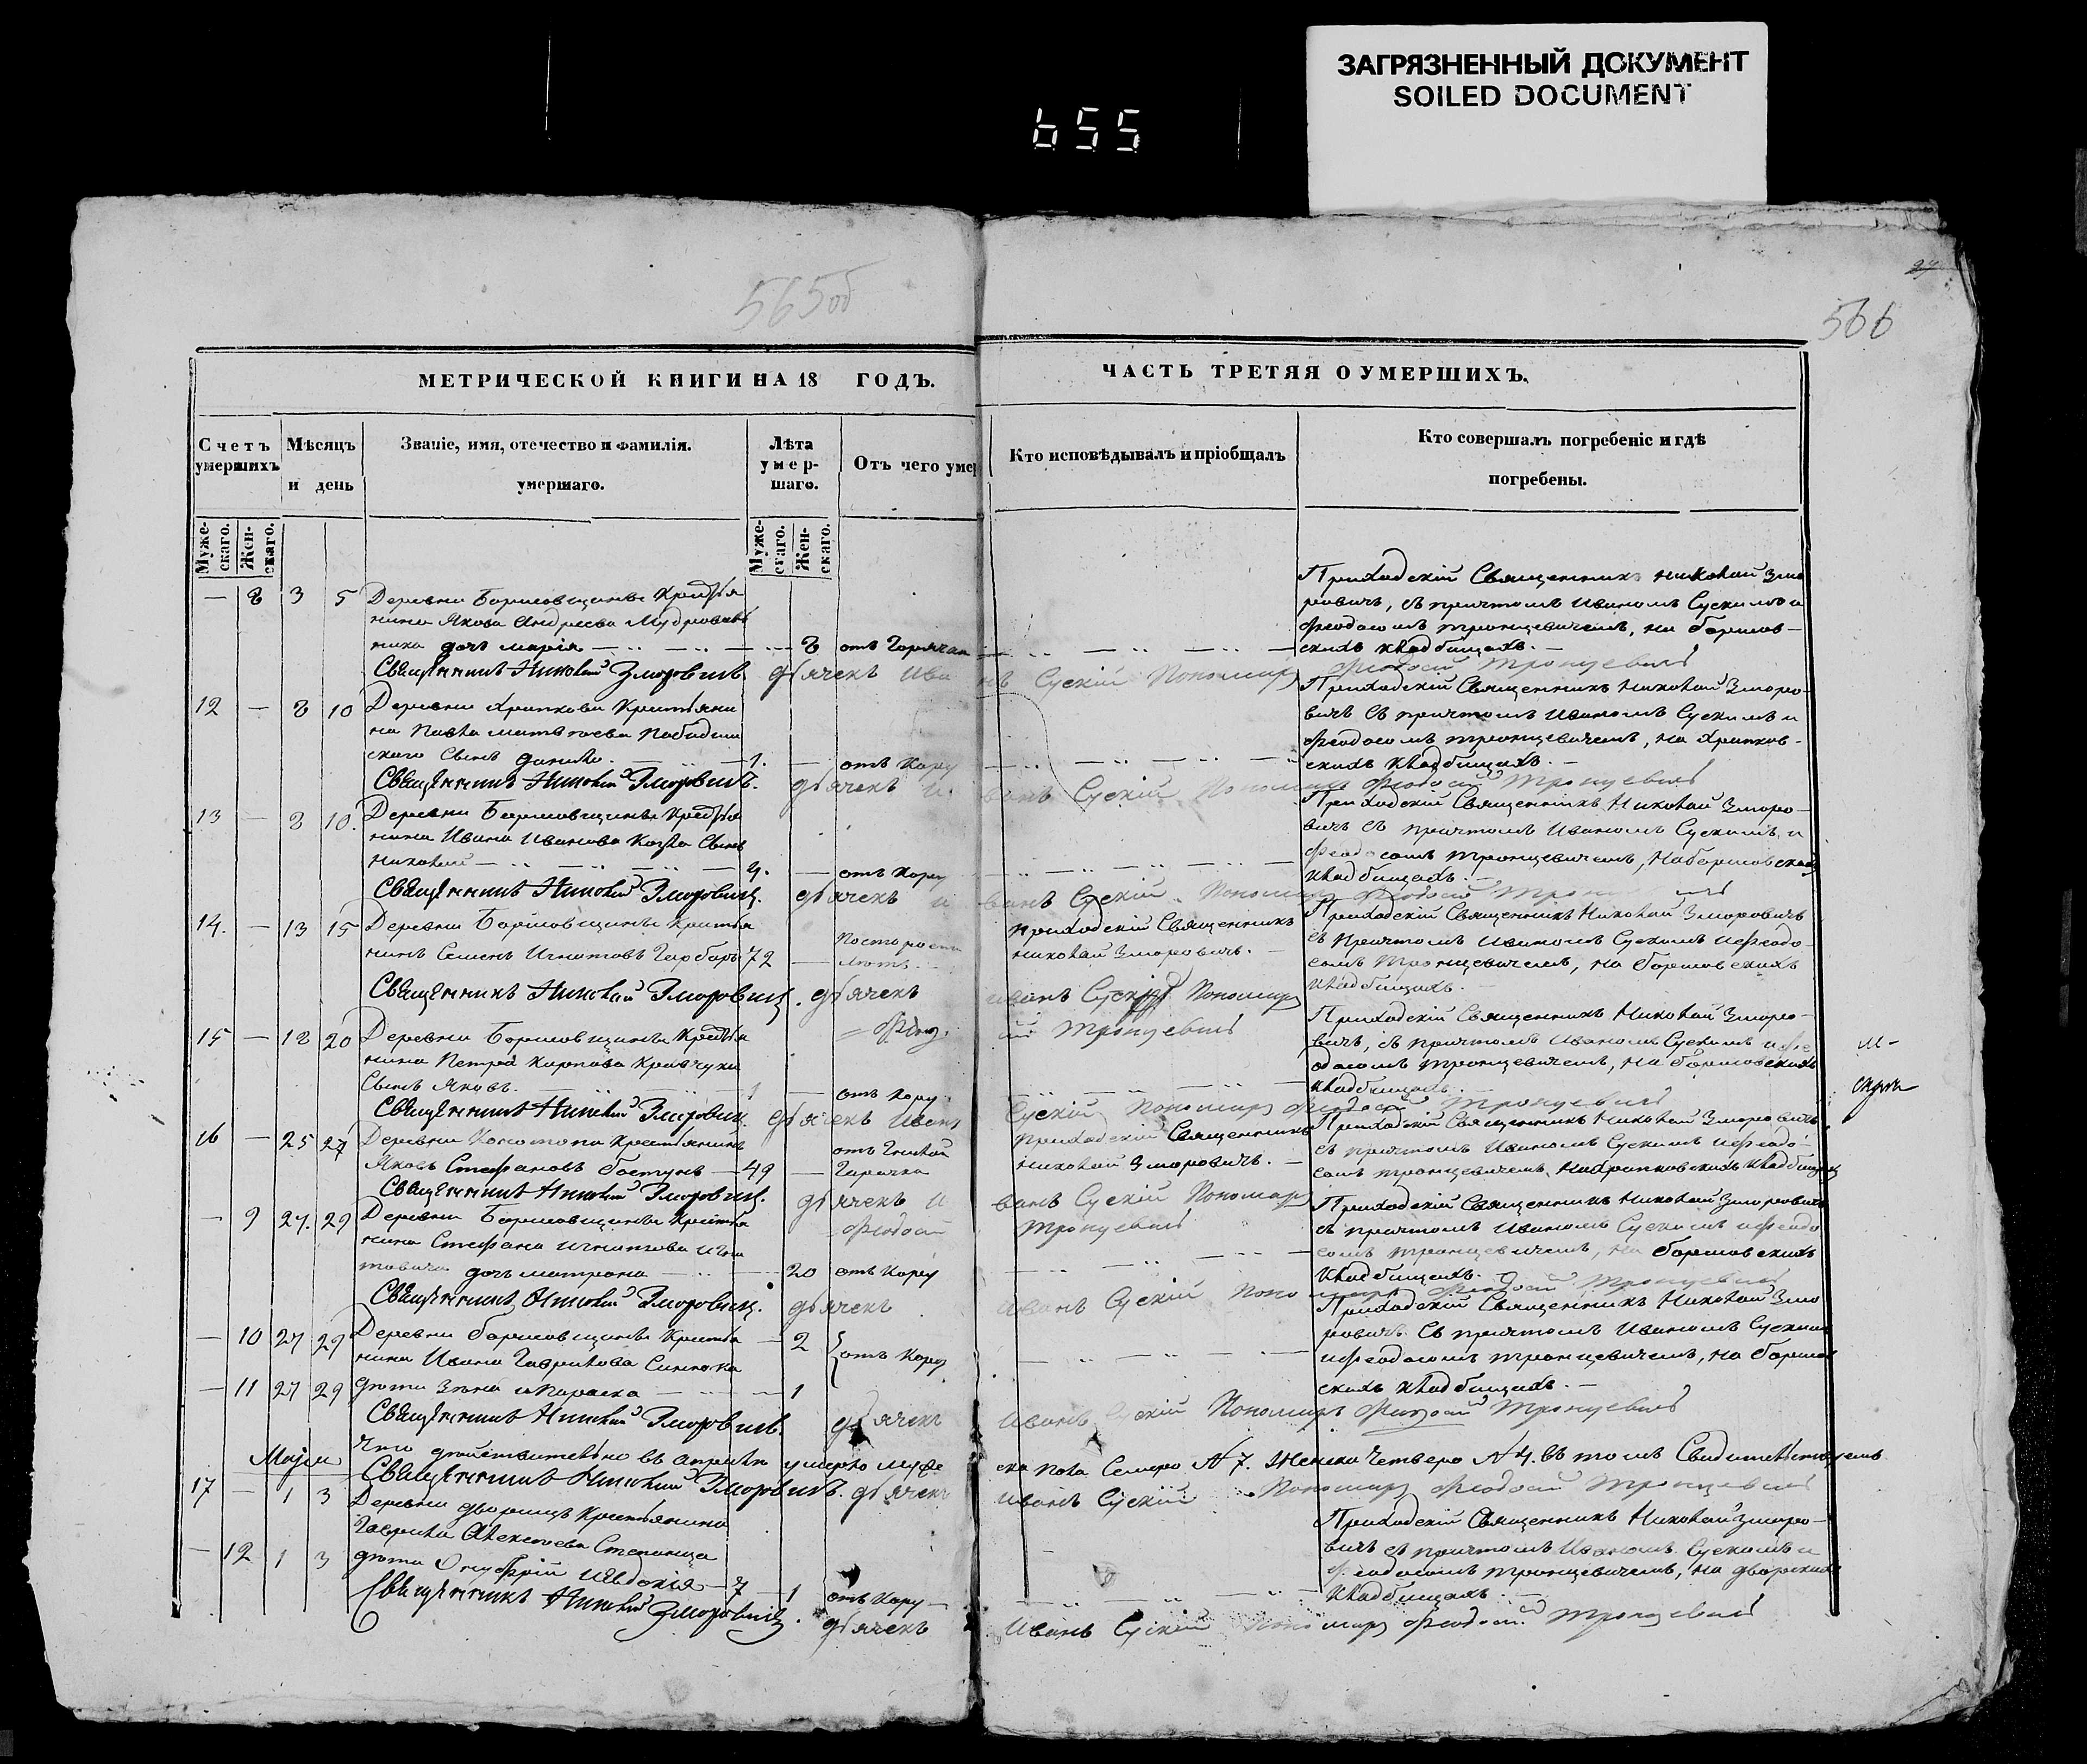 ЗАГРЯЗНЕННЫЙ ДОКУМЕНТ
SOILED DOCUMENT
655
565 об
566
МЕТРИЧЕСКОЙ КНИГИ НА 18 ГОДЪ.
ЧАСТЬ ТРЕТЯЯ О УМЕРШИХЪ.
Счетъ умершихъ
Мѣсяцъ и день
Званіе, имя, отечество и фамилія.
умершаго.
Лѣта умер-
шаго.
Отъ чего умер
Кто исповѣдывалъ и пріобщалъ
Кто совершалъ погребеніе и гдѣ
погребены.
Муже-
скаго.
Жен-
скаго.
Муже-
скаго.
Жен-
скаго.
— 8 3 5 Деревни Борисовщины Крестья
нина Якова Андреева
дочь Марія — 8 отъ Горячки
Приходскій Священникъ Николай Змо
ровичъ, съ причтомъ Иваномъ Сускимъ и
Феодосомъ Тронцевичемъ, на борисов-
скихъ кладбищахъ.
Священникъ Николай Зморовичъ дьячекъ Иванъ Сускій Пономарь Феодосій Тронцевичъ
12 — 8 10 Деревни Храпкова Крестьяни
на Павла
сынъ Данило. 1. — отъ Кору
Приходскій Священникъ Николай Зморо-
вичъ съ причтомъ Иваномъ Сускимъ и
Феодосомъ Тронцевичемъ, на Храпков-
скихъ кладбищахъ.
Священникъ Николай Зморовичъ. дьячекъ Иванъ Сускій Пономарь Феодосій Тронцевичъ
13 — 8 10. Деревни Борисовщины Крестья
нина Ивана Иванова Козла Сынъ
Николай — — отъ Кору
Приходскій Священникъ Николай Зморо-
вичъ съ причтомъ Иваномъ Сускимъ и
Феодосомъ Тронцевичемъ, на борисовскихъ
кладбищахъ.
Священникъ Николай Зморовичъ. дьячекъ Иванъ Сускій Пономарь Феодосій
14. — 13 15 Деревни Борисовщины Крестья
нинъ Семенъ Игнатовъ Гарбаръ 72 —
Приходскій Священникъ
Николай Зморовичъ.
Приходскій Священникъ Николай Зморовичъ
съ Причтомъ Иваномъ Сускимъ и Феодо-
сомъ Тронцевичемъ, на борисовскихъ
кладбищахъ.
Священникъ Николай Зморовичъ. дьячекъ Иванъ Сускій Пономарь
Тронцевичъ
15 — 18 20 Деревни Борисовщины Крестья
нина Петра Карпова Кравчука
Сынъ Яковъ. — отъ Кору
Приходскій Священникъ Николай Зморо-
вичъ, съ причтомъ Иваномъ Сускимъ и Фео
досомъ Тронцевичемъ, на борисовскихъ
кладбищахъ.
Священникъ Николай Зморовичъ. дьячекъ Иванъ Сускій Пономарь Феодосій Тронцевичъ
16 — 25 27 Деревни Конотопа Крестьянинъ
Яковъ Стефановъ — 49 — отъ Гнилой
Горячки
Приходскій Священникъ
Николай Зморовичъ.
Приходскій Священникъ Николай Зморовичъ
съ причтомъ Иваномъ Сускимъ и Феодо-
сомъ Тронцевичемъ, на Храпковскихъ кладбищахъ
Священникъ Николай Зморовичъ. дьячекъ Иванъ Сускій Пономарь
Феодосій Тронцевичъ
— 9 27. 29 Деревни Борисовщины Крестья
нина Стефана Игнатова Игна
товича дочь Матрона — 20 отъ Кору
Приходскій Священникъ Николай Зморовичъ
съ причтомъ Иваномъ Сускимъ и Феодо
сомъ Тронцевичемъ, на борисовскихъ
кладбищахъ.
Священникъ Николай Зморовичъ. дьячекъ Иванъ Сускій Пономарь Феодосій Тронцевичъ
— 10 27 29 Деревни Борисовщины Крестья — 2
нина Ивана Гаврилова отъ Кору
— 11 27 29 дѣти и Параска — 1
Приходскій Священникъ Николай Змо
ровичъ съ причтомъ Иваномъ Сускимъ
и Феодосомъ Тронцевичемъ, на борисов
скихъ кладбищахъ.
Священникъ Николай Зморовичъ. дьячекъ Иванъ Сускій Пономарь Феодосій Тронцевичъ
Что дѣйствительно въ Апрѣлѣ умерло муже
ска пола Семеро № 7. Женска Четверо № 4. въ томъ Свидетельствуемъ
Священникъ Николай Зморовичъ. дьячекъ Иванъ Сускій Пономарь Феодосій Тронцевичъ
17 — 1 3 Деревни Дворецъ Крестьянина
Гаврила Алексѣева
— 12 1 3 дѣти Онуфрій и Явдокія — 7 — 1 отъ Кору
Приходскій Священникъ Николай Зморо-
вичъ съ причтомъ Иваномъ Сускимъ и
Феодосомъ Тронцевичемъ, на дворскихъ
кладбищахъ.
Священникъ Николай Зморовичъ. дьячекъ Иванъ Сускій Пономарь Феодосій Тронцевичъ